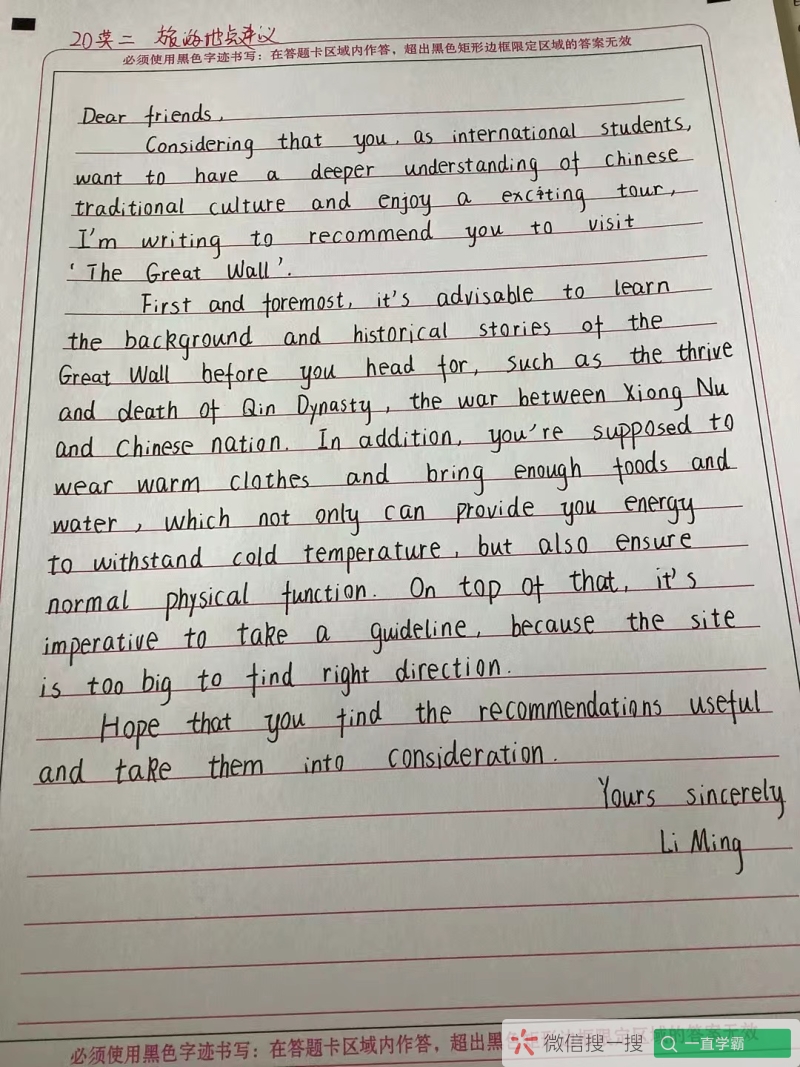 20英二 旅游地点建议
必须使用黑色字迹书写：在答题卡区域内作答，超出黑色矩形边框限定区域的答案无效
Dear friends,
Considering that you, as international students,
want to have a deeper understanding of chinese
traditional culture and enjoy a exciting tour,
I'm writing to recommend you to visit
'The Great Wall'.
First and foremost, it's advisable to learn
the background and historical stories of the
Great Wall before you head for, such as the thrive
and death of Qin Dynasty, the war between Xiong Nu
and Chinese nation. In addition, you're supposed to
wear warm clothes and bring enough foods and
water, which not only can provide you energy
to withstand cold temperature, but also ensure
normal physical function. On top of that, it's
imperative to take a guideline, because the site
is too big to find right direction.
Hope that you find the recommendations useful
and take them into consideration.
Yours sincerely
Li Ming
必须使用黑色字迹书写：在答题卡区域内作答，超出黑色矩形边框限定区域的答案无效
微信搜一搜
一直学霸